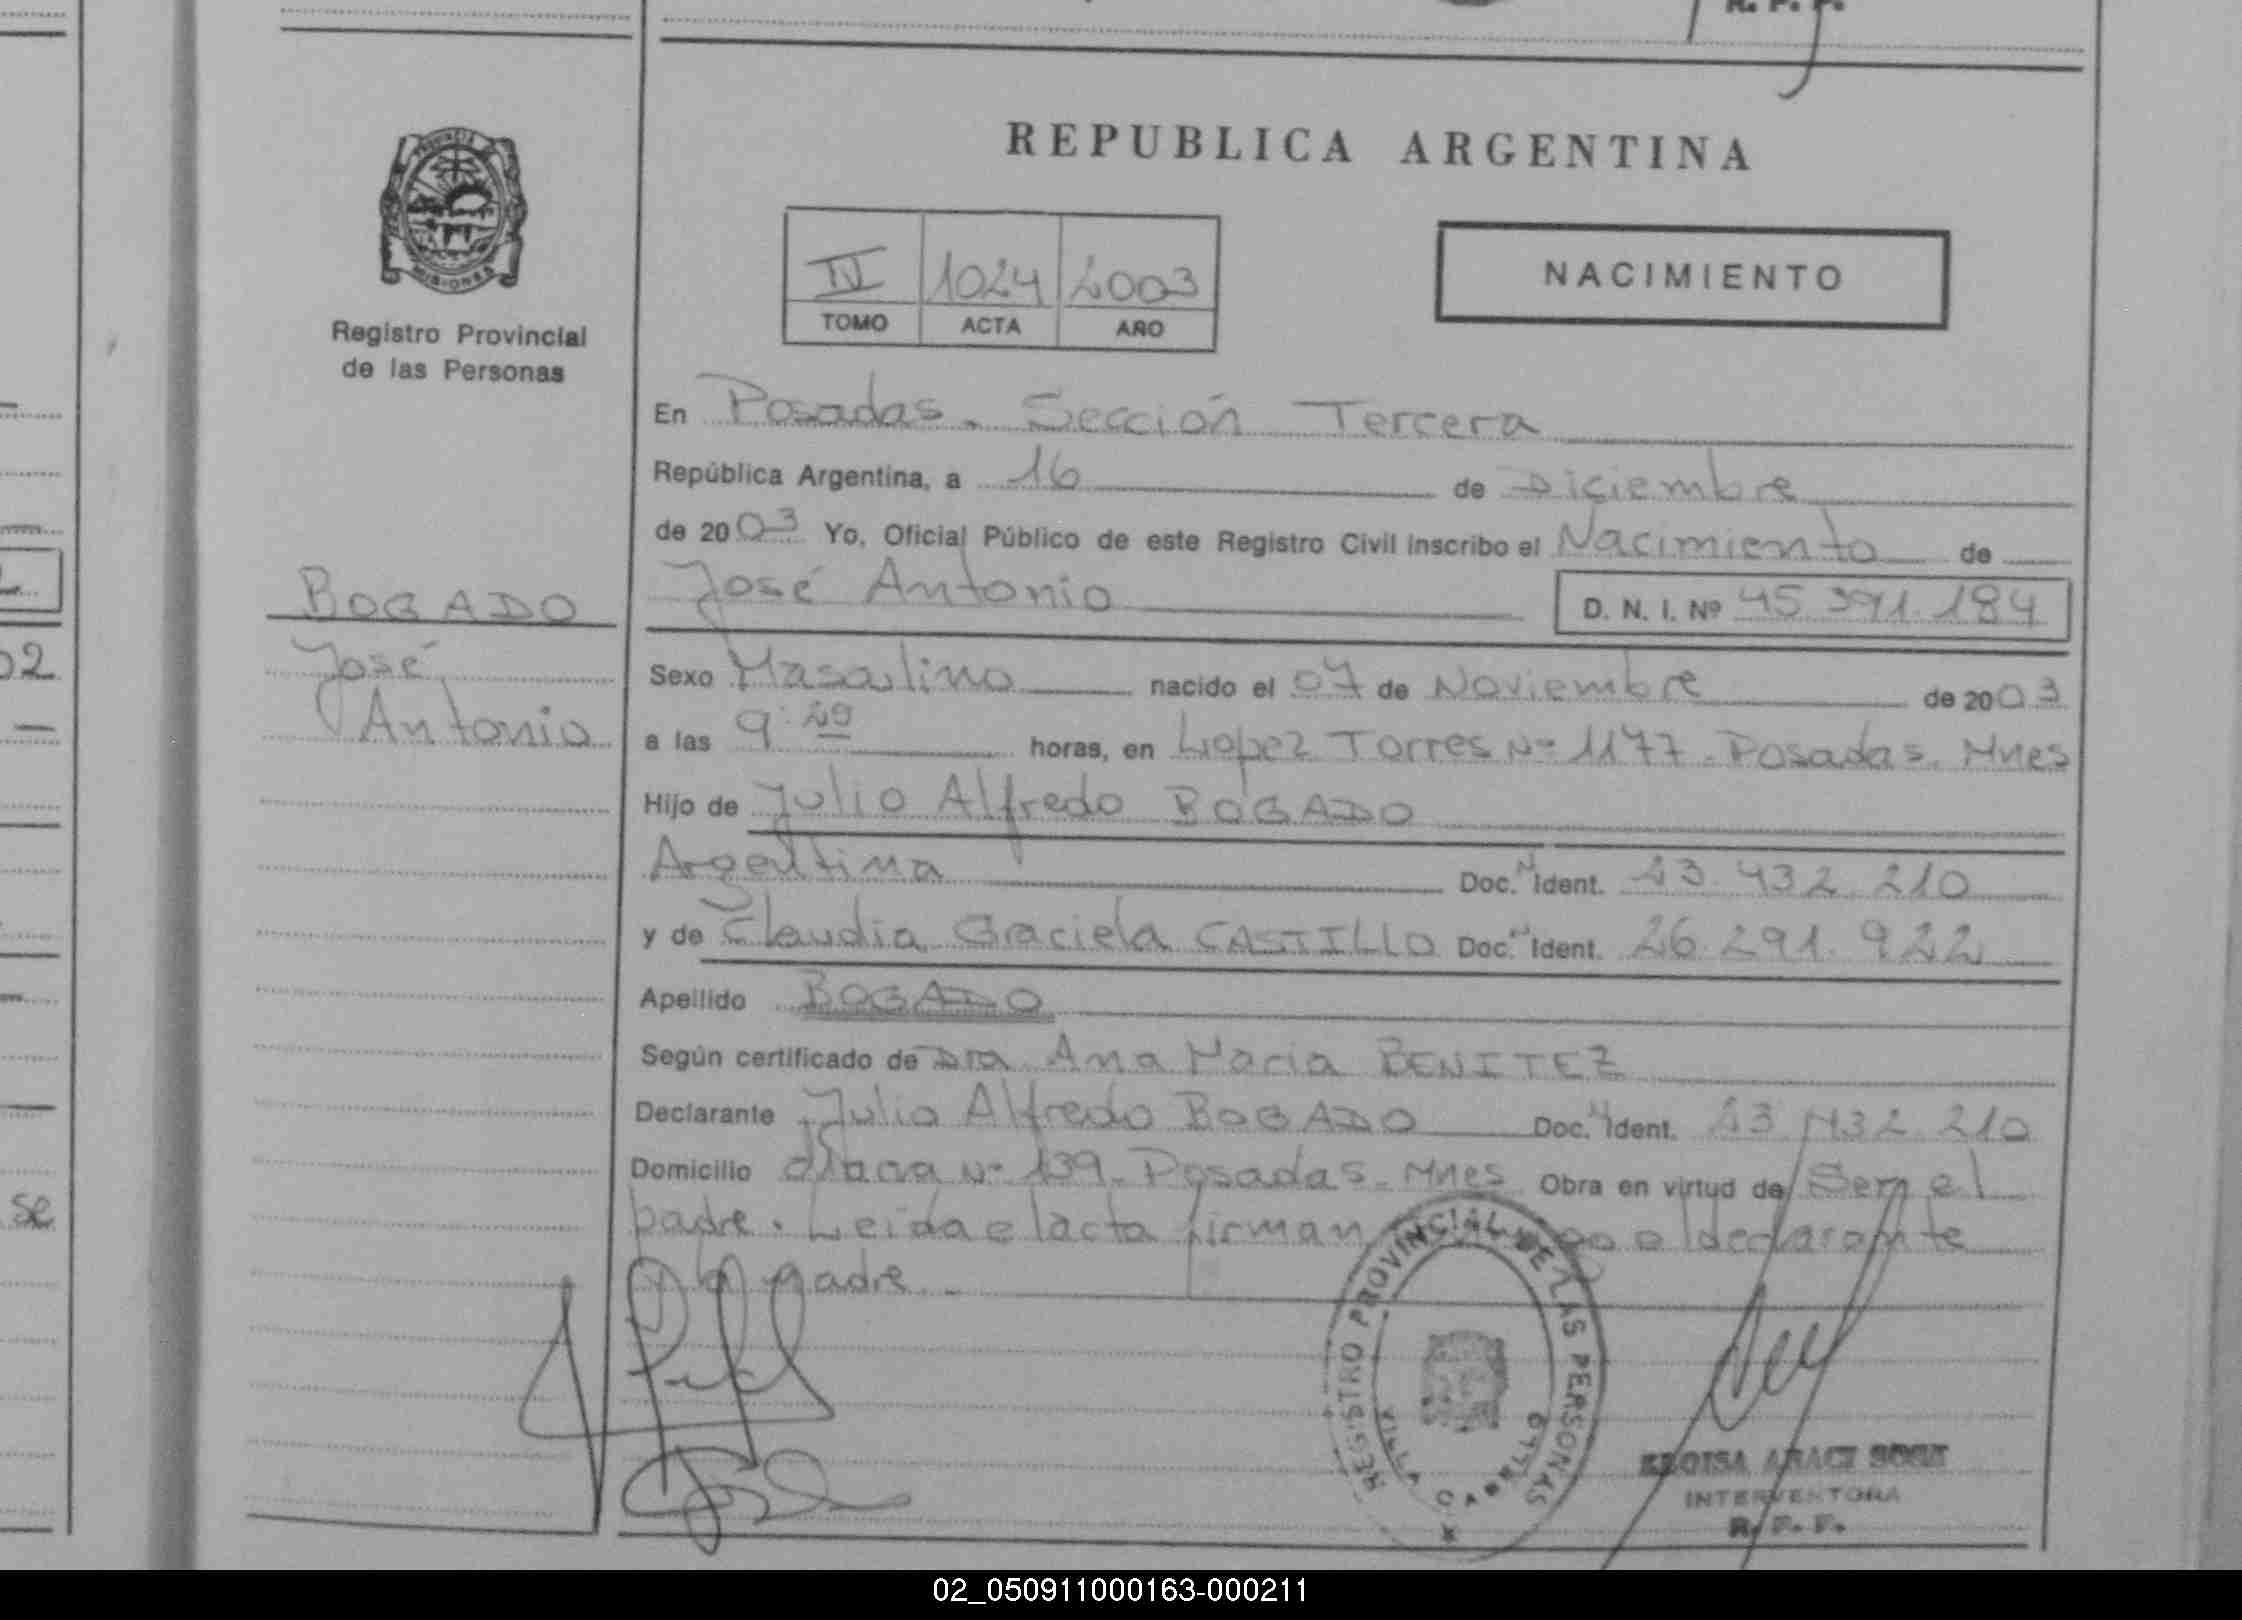 R. P. P.
REPUBLICA ARGENTINA
PROVINCIA DE
MISIONES
Registro Provincial
de las Personas
IV 1024 2003
TOMO ACTA AÑO
NACIMIENTO
En Posadas. Sección Tercera
República Argentina, a 16 de Diciembre
de 2003 Yo, Oficial Público de este Registro Civil inscribo el Nacimiento de
José Antonio D. N. I. Nº 45.391.184
BOGADO
José
Antonio
Sexo Masculino nacido el 07 de Noviembre de 2003
a las 9:29 horas, en Lopez Torres Nº 1177. Posadas. Mnes
Hijo de Julio Alfredo BOGADO
Argentina Doc. N Ident. 23.432.210
y de Claudia Graciela CASTILLO Doc. N Ident. 26.291.922
Apellido BOGADO
Según certificado de Dra Ana Maria BENITEZ
Declarante Julio Alfredo BOGADO Doc. N Ident. 23.432.210
Domicilio Nº 139. Posadas. Mnes Obra en virtud de Ser el
padre. Leida el acta firman el declarante
y la madre.
REGISTRO PROVINCIAL DE LAS PERSONAS
VILLA CABELLO
INTERVENTORA
R. P. P.
02
se
02_050911000163-000211